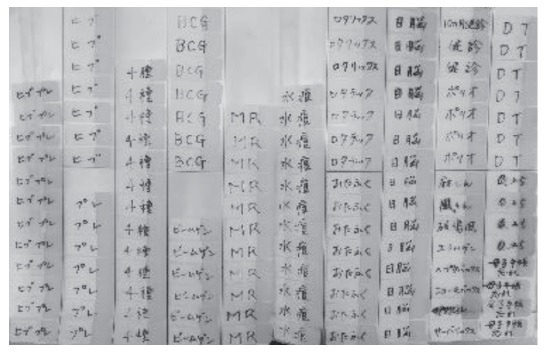 ヒブ
BCG
ロタリックス
日脳
10か月健診
DT
ヒブ
BCG
ロタリックス
日脳
健診
DT
ヒブ
4種
BCG
ロタリックス
日脳
健診
DT
ヒブプレ
ヒブ
4種
BCG
水痘
ロタテック
日脳
ポリオ
DT
ヒブプレ
ヒブ
4種
BCG
MR
水痘
ロタテック
日脳
ポリオ
DT
ヒブプレ
ヒブ
4種
BCG
MR
水痘
ロタテック
日脳
ポリオ
DT
ヒブプレ
ヒブ
4種
BCG
MR
水痘
ロタテック
日脳
ポリオ
DT
ヒブプレ
4種
MR
水痘
おたふく
日脳
麻しん
0.25
ヒブプレ
プレ
4種
MR
水痘
おたふく
日脳
風しん
0.25
ヒブプレ
プレ
4種
ビームゲン
MR
水痘
おたふく
日脳
破傷風
0.25
ヒブプレ
プレ
4種
ビームゲン
MR
水痘
おたふく
日脳
0.25
ヒブプレ
プレ
4種
ビームゲン
MR
水痘
おたふく
日脳
母子手帳
忘れ
ヒブプレ
プレ
4種
ビームゲン
MR
水痘
おたふく
日脳
ニューモバックス
母子手帳
忘れ
ヒブプレ
プレ
4種
ビームゲン
MR
水痘
おたふく
日脳
母子手帳
忘れ
ヒブプレ
プレ
4種
ビームゲン
MR
水痘
おたふく
日脳
サーバリックス
母子手帳
忘れ